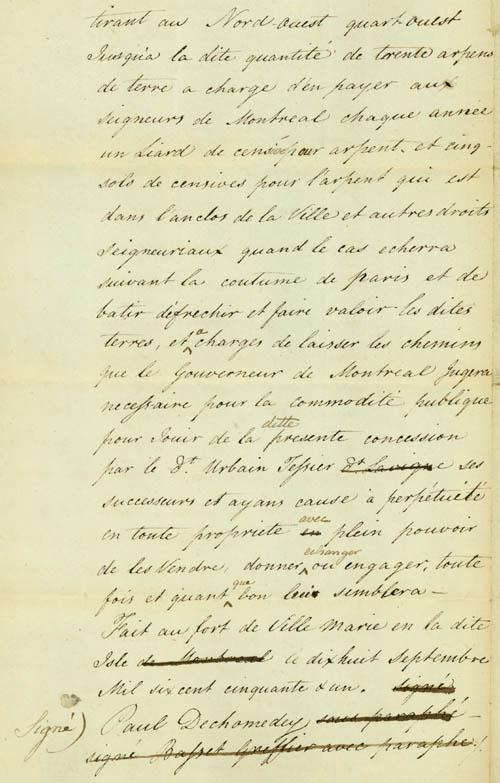 tirant au Nord ouest quart ouest
Jusqu'a la dite quantité de trente arpens
de terre a charge d'en payer aux
seigneurs de Montreal chaque année
un Liard de censive pour arpent, et cinq
sols de censives pour l'arpent qui est
dans l'anclos de la Ville et autres droits
seigneuriaux quand le cas echerra
suivant la coutume de paris et de
batir defrechir et faire valoir les dites
terres, et a charges de laisser les chemins
que le Gouverneur de Montreal Jugera
necessaire pour la commodité publique
pour Jouir de la ditte presente concession
par le dt. Urbain Tessier dt Lavigne ses
successeurs et ayans cause à perpétuité
en toute proprieté en avec plein pouvoir
de les Vendre, donner, echanger ou engager, toute
fois et quant que bon leur semblera —
Fait au fort de Ville Marie en la dite
Isle de Montreal le dixhuit Septembre
Mil six cent cinquante & un. signé
Signé) Paul Dechomedey sous paraphé —
signé Basset Greffier avec paraphe /.